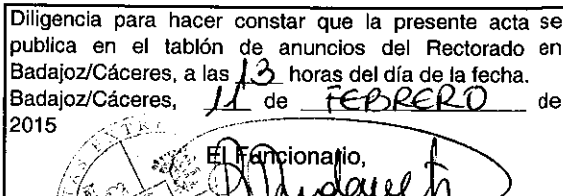 Diligencia para hacer constar que la presente acta se
publica en el tablón de anuncios del Rectorado en
Badajoz/Cáceres, a las 13 horas del día de la fecha.
Badajoz/Cáceres, 11 de FEBRERO de
2015
El Funcionario,